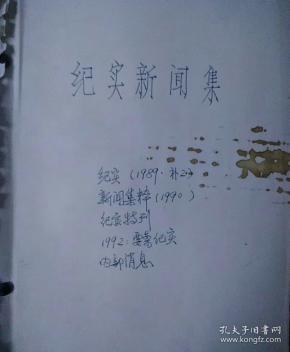 纪实新闻集
纪实（1989·补2）
新闻集粹（1990）
纪实特刊
1992：要案纪实
内部消息
孔夫子旧书网